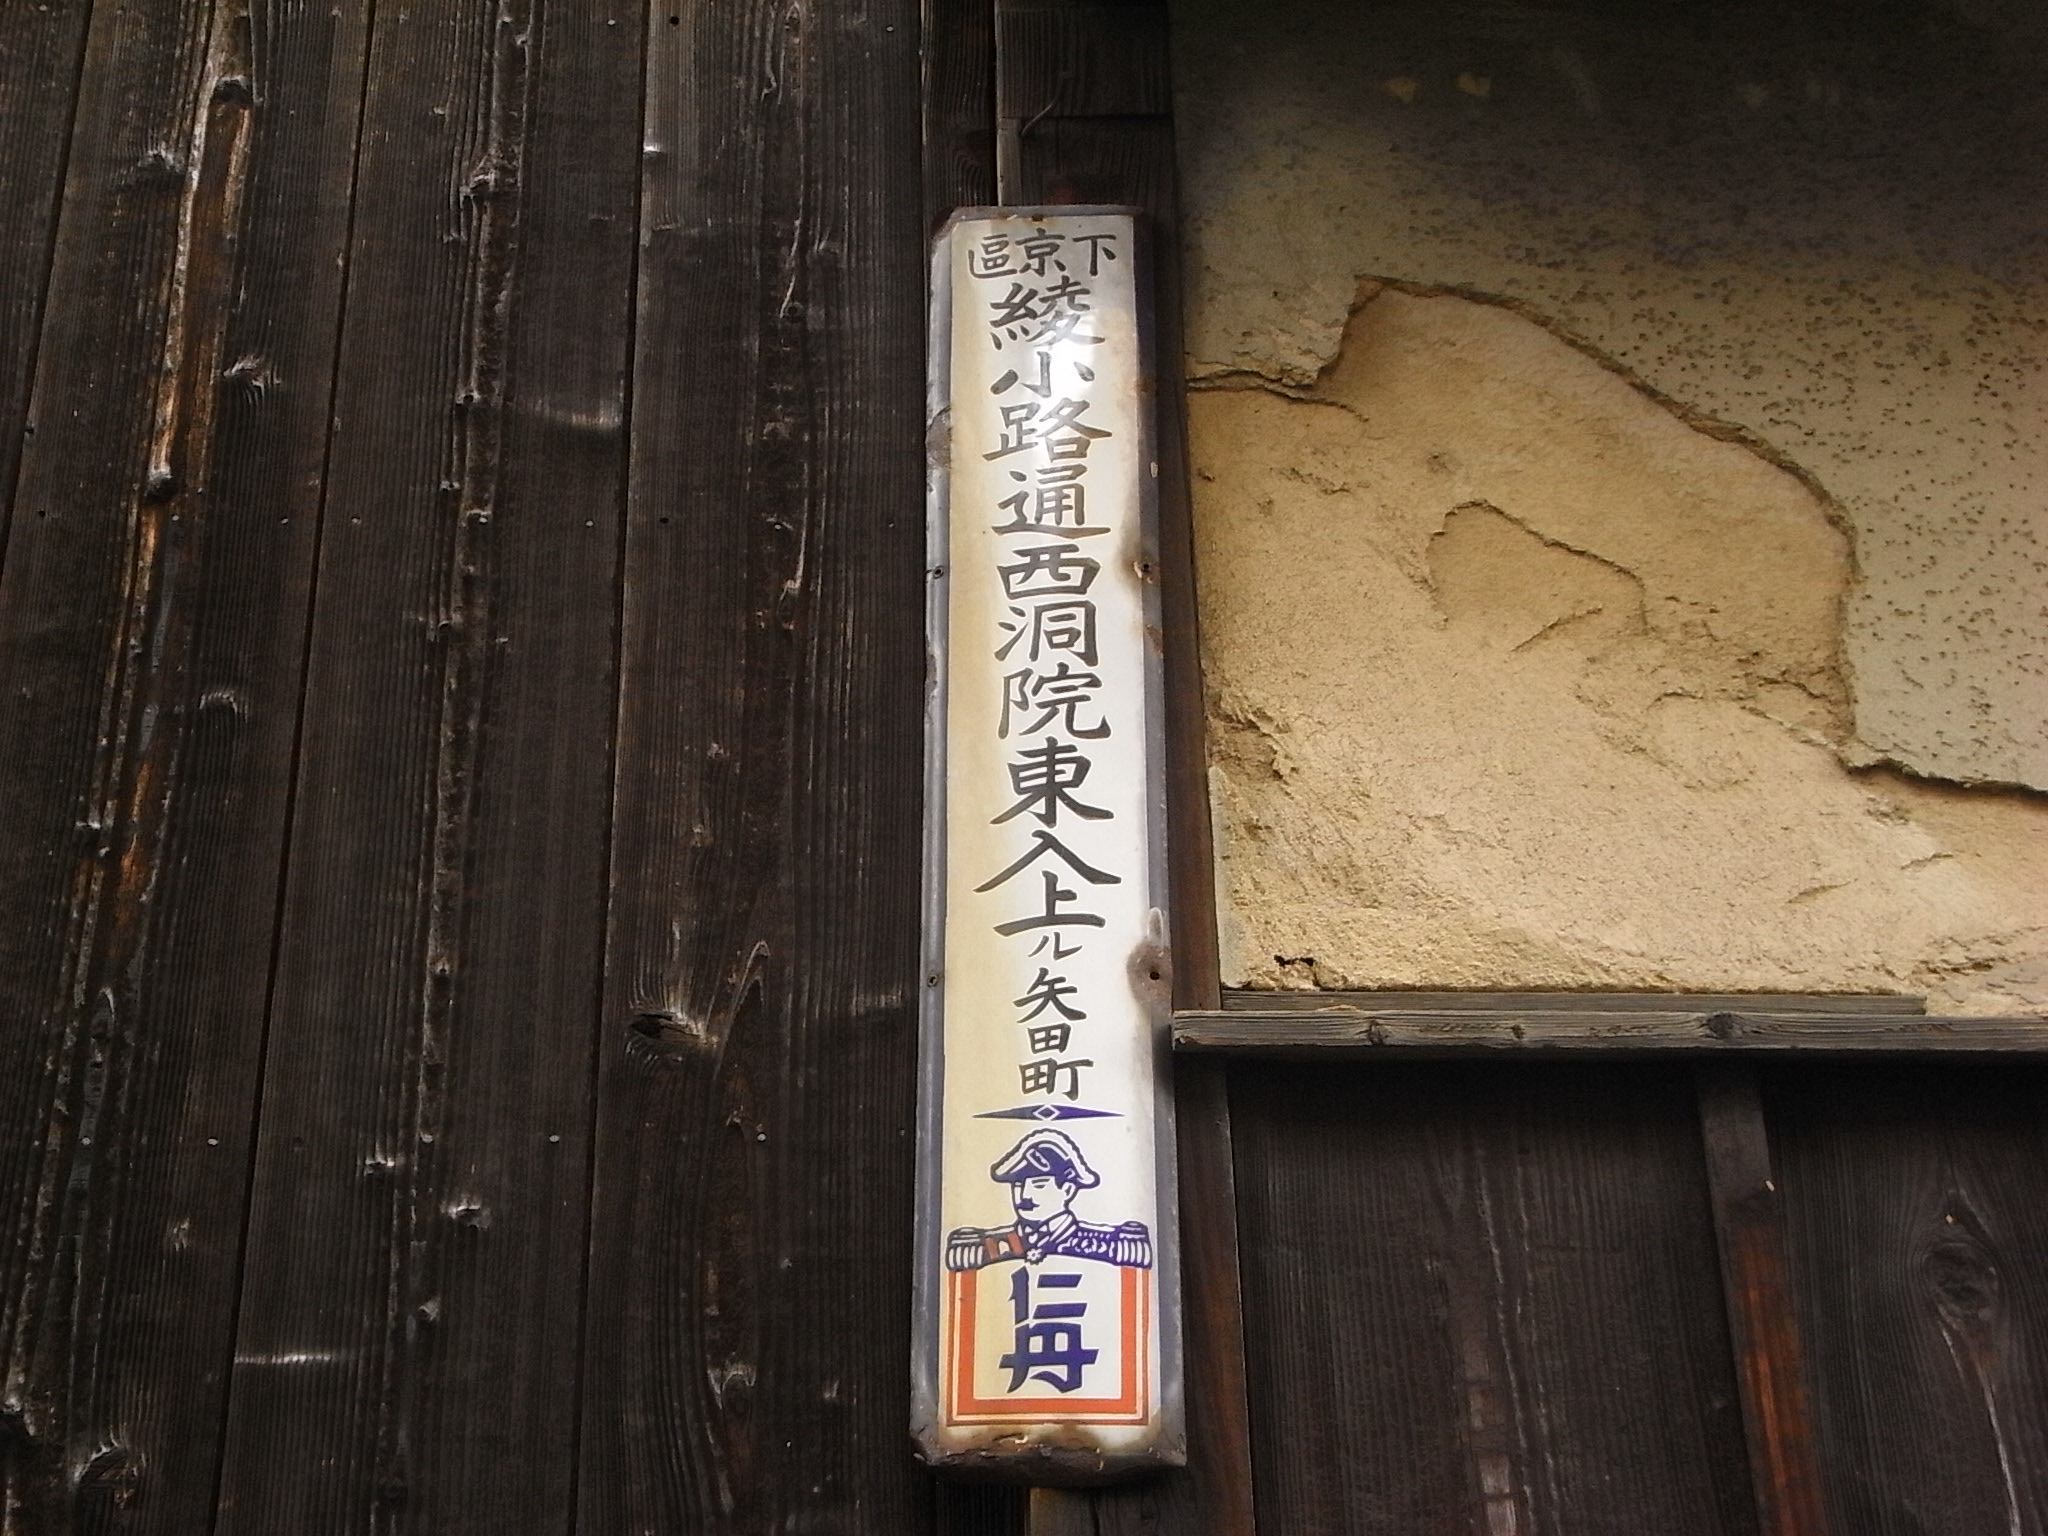 下京區
綾小路通西洞院東入上ル矢田町
仁丹